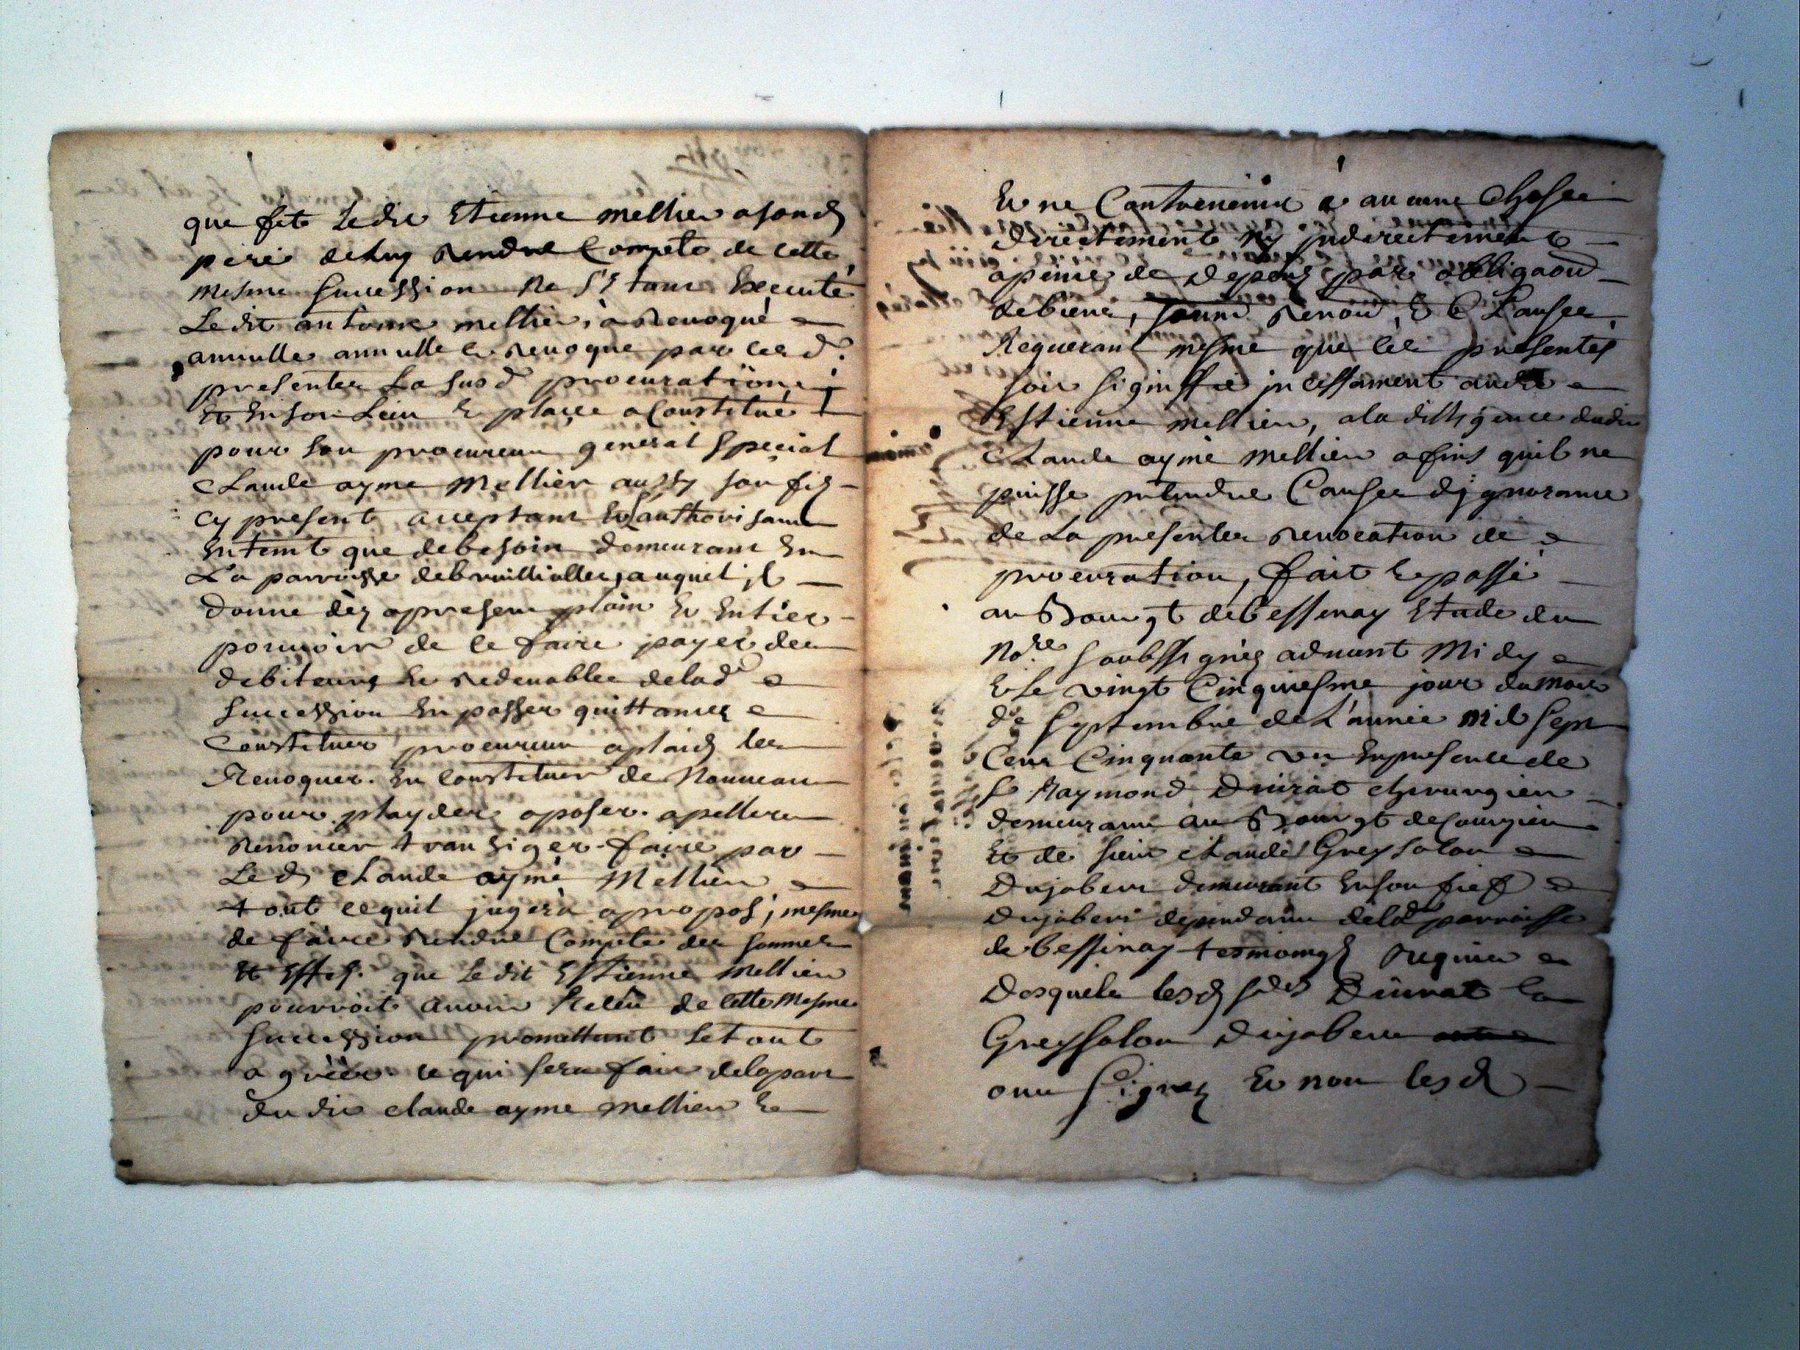 que fit Ledit Etienne mellier a son d
pere de luy rendre Compte de cette
mesme succession Ne s'etant Execute
Ledit antoine mellier, à Revoqué
annulle annulle & revoque par ces d.
presentes La susd procuration
Et En son Lieu & place a Constitué
pour son procureur general special
Claude ayme Mellier aussy son fis
cy present acceptant Et authorisant
En temt que de besoin demeurant En
La parroisse de brulliolles, auquel jl
donne dèz apresent plain Et Entier
pouvoir de se faire payer des
debiteurs Et Redevables de lad
succession En passer quittances
Constituer procureur a plaid les
Revoquer. En Constituer de Nouveau
pour playder oposer. apeller
Renoncer transiger. faire par
Led Claude aymé Mellier
tout cequil jugera apropos, mesme
de faire Rendre Compte des sommes
Et Effes. que Ledit Estienne Mellier
pourroit avoir Recëu de cette Mesme
succession promettant Le tout
agréer ce qui sera fait de la part
dudit Claude ayme Mellier &
Et ne Contrevenir a aucune Chose
directement Ny jndirectement
apeine de depens par obligaon
de biens, Renon & Clauses
Requerant mesme que les presentes
soit signiffié jncessament audit
Estienne mellier, a la dilligence dudit
Claude aymé Mellier afins quil ne
puisse pretendre Causes djgnorance
de La presentes revocation de
procuration, fait & passé
au Bourgt de bessenay Etude du
No.re soubssignéz advant Midy
& le vingt Cinquiesme jour du Mois
de septembre de L'année mil sept
Cent Cinquante un En presence de
sr Raymond Duirat chirurgien
demeurant au Bourgt de Courzieu
Et de sieur Claude Greysolon
Dujabert demeurant En son fief
Dujabert dependant de lad parroisse
de bessenay tesmoings Requis
Desquels lesd srs Duirat &
Greysolon Dujabert
ont signez Et non lesd